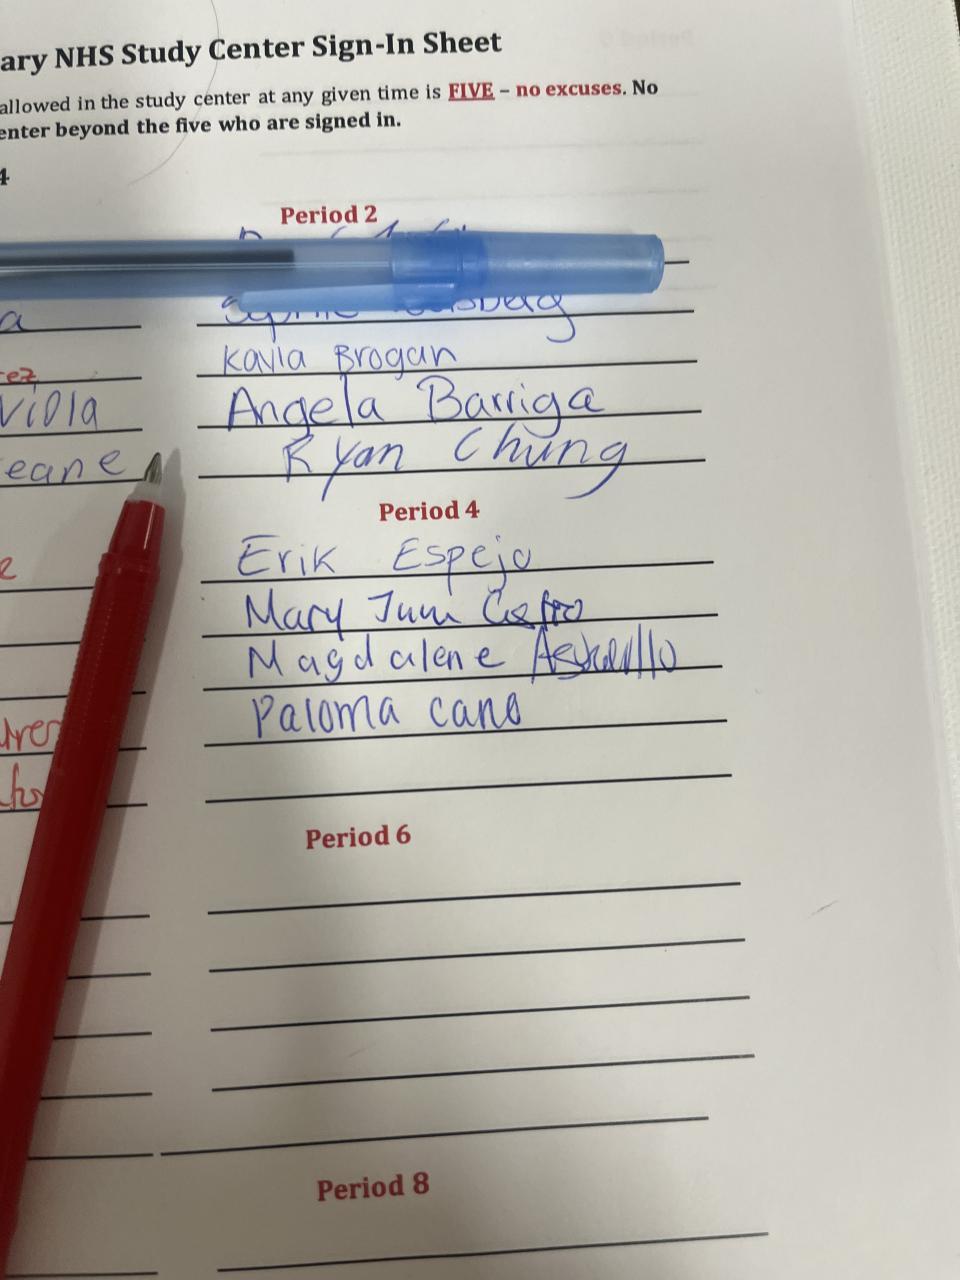 ary NHS Study Center Sign-In Sheet
allowed in the study center at any given time is FIVE – no excuses. No
enter beyond the five who are signed in.
4
Period 2
a
Kayla Brogan
ez
viola
Angela Barriga
eane
Ryan Chung
Period 4
Erik Espejo
e
Mary Castro
Magdalene
Paloma cano
Period 6
Period 8